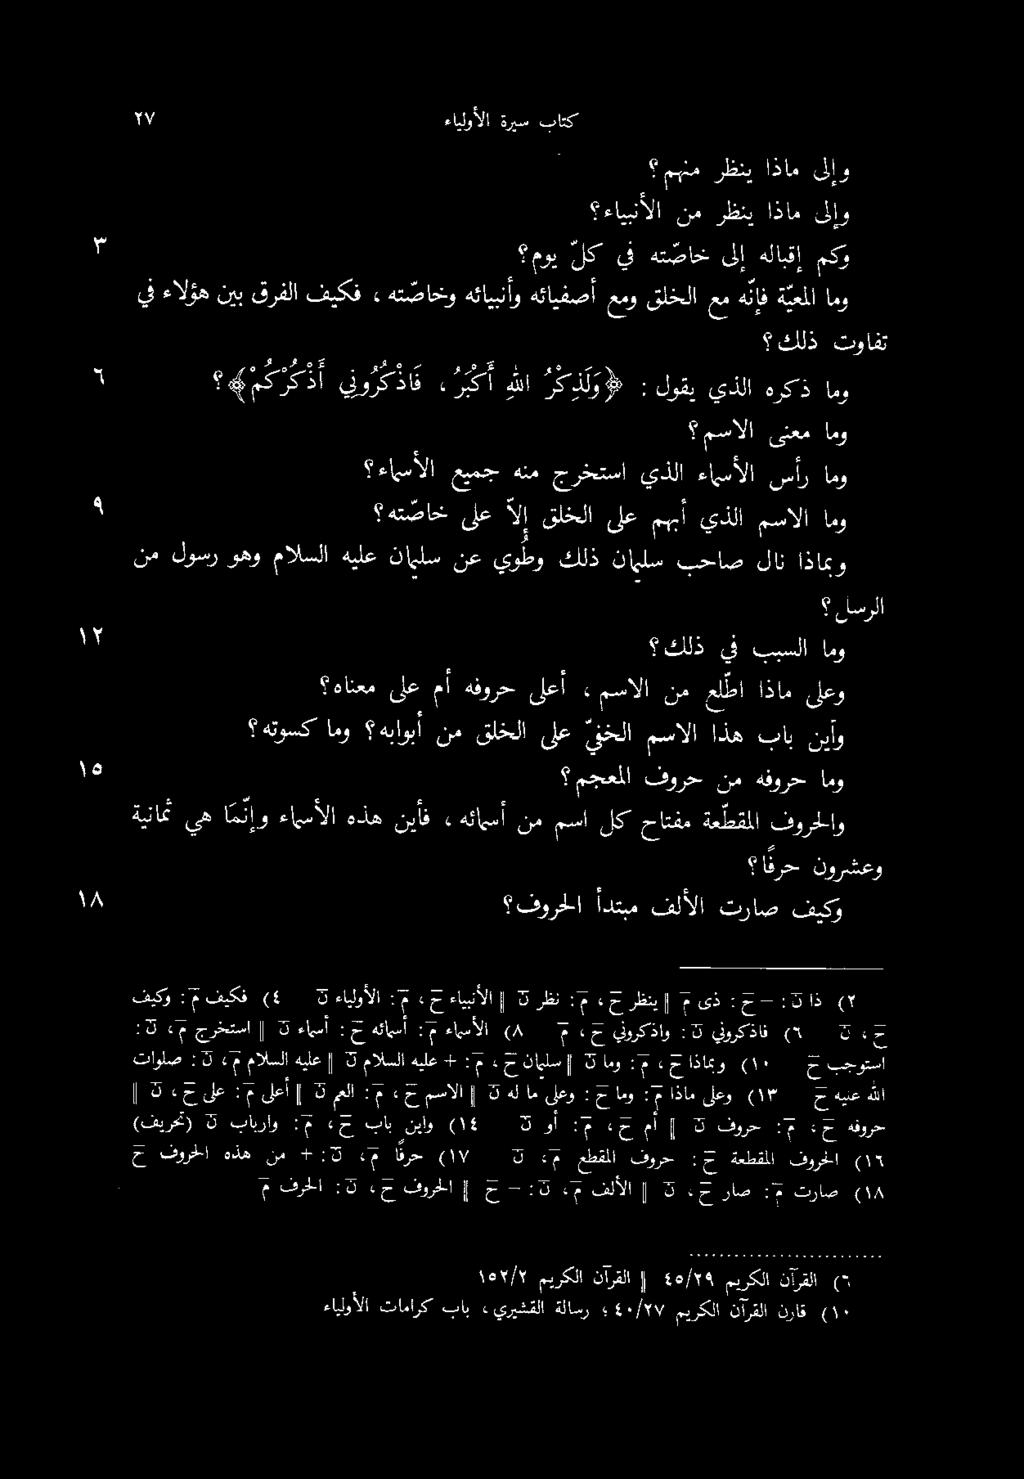 كتاب سيرة الأولياء ٢٧
وإلى ماذا ينظر منهم؟
وإلى ماذا ينظر من الأنبياء؟
وكم إقباله إلى خاصّته في كلّ يوم؟ ٣
وما المعيّة فإنّه مع الخلق ومع أصفيائه وأنبيائه وخاصّته ، فكيف الفرق بين هؤلاء في
تفاوت ذلك؟
وما ذكره الذي يقول : ﴿وَلَذِكْرُ اللهِ أَكْبَرُ ، فَاذْكُرُونِي أَذْكُرْكُمْ﴾؟ ٦
وما معنى الاسم؟
وما رأس الأسماء الذي استخرج منه جميع الأسماء؟
وما الاسم الذي أبهم على الخلق إلاّ على خاصّته؟ ٩
وبماذا نال صاحب سليمان ذلك وطُوي عن سليمان عليه السلام وهو رسول من
الرسل؟
وما السبب في ذلك؟ ١٢
وعلى ماذا اطّلع من الاسم ، أعلى حروفه أم على معناه؟
وأين باب هذا الاسم الخفيّ على الخلق من أبوابه؟ وما كسوته؟
وما حروفه من حروف المعجم؟ ١٥
والحروف المقطّعة مفتاح كل اسم من أسمائه ، فأين هذه الأسماء وإنّما هي ثمانية
وعشرون حرفًا؟
وكيف صارت الألف مبتدأ الحروف؟ ١٨
٢) ذا ن : – ح : ذى م ‖ ينظر ح ، م : نظر ن ‖ الأنبياء ح ، م : الأولياء ن ٤) فكيف م : وكيف
ح ، ن ٦) فاذكروني ن : واذكروني ح ، م ٨) الأسماء م : أسمائه ح : أسماء ن ‖ استخرج م ، ن :
استوجب ح ١٠) وبماذا ح ، م : وما ن ‖ سليمان ح ، م : + عليه السلام ن ‖ عليه السلام م ، ن : صلوات
الله عنيه ح ١٣) وعلى ماذا م : وما ح : وعلى ما له ن ‖ الاسم ح ، م : العم ن ‖ أعلى م : على ح ، ن ‖
حروفه ح ، م : حروف ن ‖ أم ح ، م : أو ن ١٤) واين باب ح ، م : وارباب ن (تحريف)
١٦) الحروف المقطعة ح : حروف المقطع م ، ن ١٧) حرفًا م ، ن : + من هذه الحروف ح
١٨) صارت م : صار ح ، ن ‖ الألف م ، ن : – ح ‖ الحروف ح ، ن : الحرف م
٦) القرآن الكريم ٤٥/٢٩ ‖ القرآن الكريم ١٥٢/٢
١٠) قارن القرآن الكريم ٤٠/٢٧ ؛ رسالة القشيري ، باب كرامات الأولياء